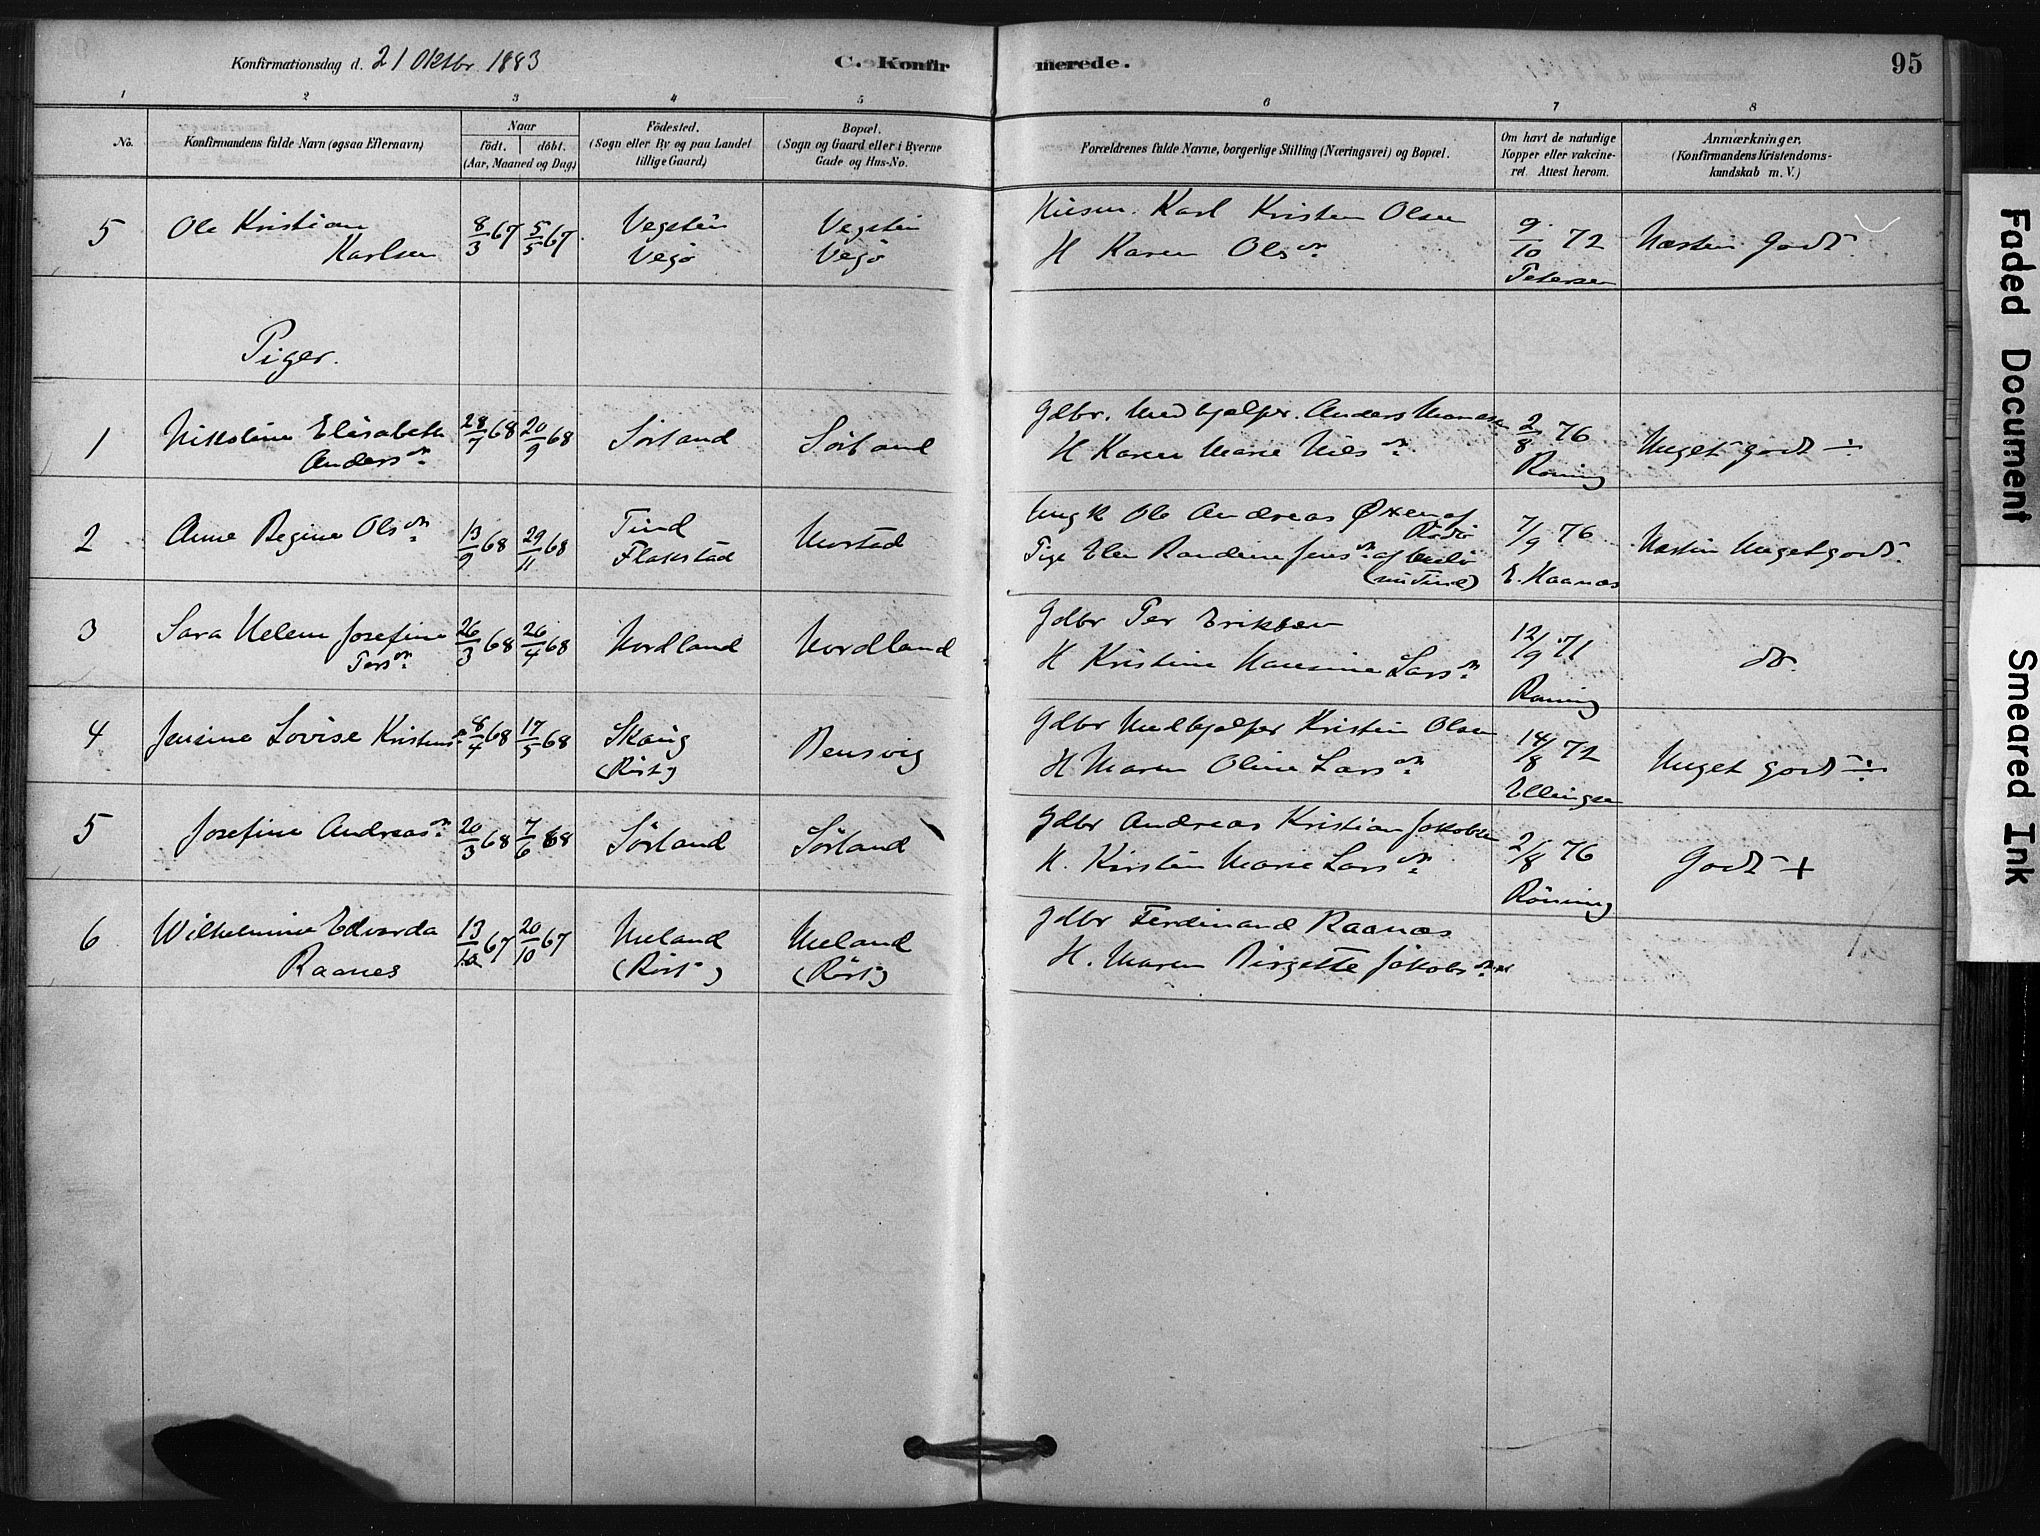 Konfirmationsdag d. 21 Oktbr 1883
C. Konfirmerede.
95
1 2 3 4 5 6 7 8
No.
Konfirmandens fulde Navn (ogsaa Efternavn)
Naar
født. døbt.
(Aar, Maaned og Dag)
Fødested.
(Sogn eller By og paa Landet
tillige Gaard)
Bopæl.
(Sogn og Gaard eller i Byerne
Gade og Hus-No.
Forældrenes fulde Navne, borgerlige Stilling (Næringsvei) og Bopæl.
Om havt de naturlige
Kopper eller vakcine-
ret. Attest herom.
Anmærkninger.
(Konfirmandens Kristendoms-
kundskab m. V.)
5 Ole Kristian Karlsen 8/3 67 5/5 67 Vegstein Vegø Vegstein Vegø
Husm. Karl Kristen Olsen
H Karen Olsdr
9/10 72 Petersen
Næsten Godt
Piger.
1 Nikoline Elisabeth Andersdr 28/7 68 20/9 68 Sørland Sørland
Gdbr. Medhjelper. Anders
H Karen Marie Nilsdr
2/8 76 Røning
Meget godt ÷
2 Anne Regine Olsdr 13/9 68 29/11 68 Tind Flakstad Mostad
Ungk Ole Andreas Øxen af Rødø
Pige Elen Randine Jensdr af
7/9 76 E. Haanæs
Næsten Meget godt
3 Sara Helene Josefine Persdr 26/3 68 26/4 68 Nordland Nordland
Gdbr Per Eriksen
H Kristine Larsdr
12/9 71 Røning
do.
4 Jensine Lovise Kristensdr 8/4 68 17/5 68 Skaug (Røst) Rensvig
Gdbr Medhjelper Kristen Olsen
H Maren Oline Larsdr
14/8 72 Ellingsen
Meget godt ÷
5 Josefine Andreasdr 20/3 68 7/6 68 Sørland Sørland
Gdbr Andreas Kristian Jakobsen
H. Kirsten Marie Larsdr
2/8 76 Rönning
Godt +
6 Wilhelmine Edvarda Raanes 13/10 67 20/10 67 Meland (Røst) Meland (Røst)
Gdbr Ferdinand Raanæs
H. Maren Birgette Jakobsdr
Faded Document
Smeared Ink